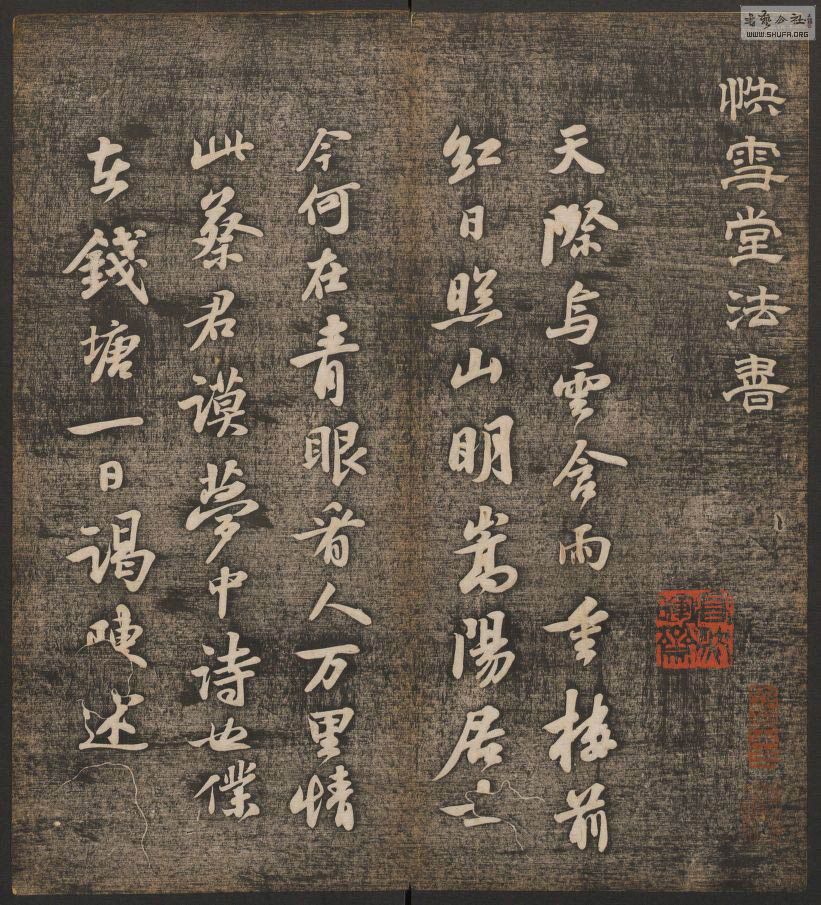 書藝公社
WWW.SHUFA.ORG
快雪堂法書
天際烏雲含雨重樓前
紅日照山明嵩陽居士
今何在青眼看人万里情
此蔡君謨夢中詩也僕
在錢塘一日謁陳述